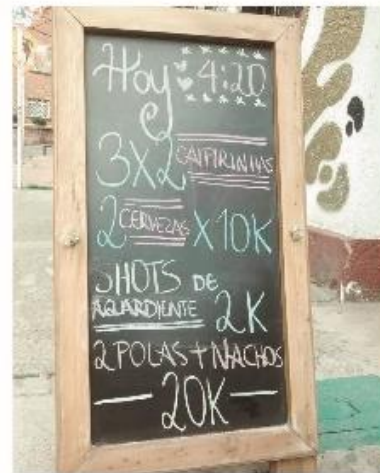 Hoy 4:20
3X2 CAIPIRINHAS
2 CERVEZAS X 10K
SHOTS DE
AGUARDIENTE 2K
2 POLAS + NACHOS
20K